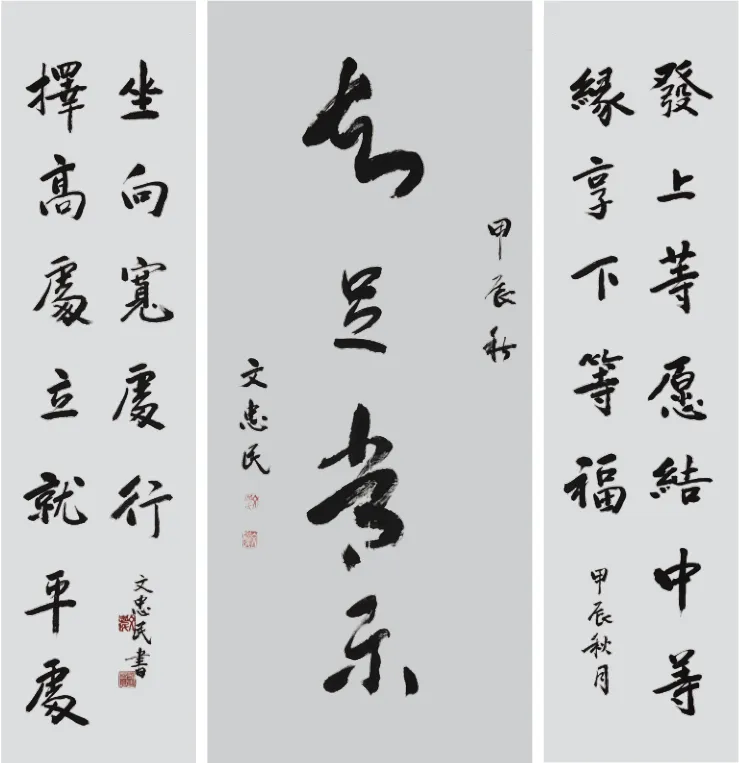 發上等愿結中等
緣享下等福
甲辰秋月
甲辰秋
知足常乐
文忠民
擇高處立就平處
坐向寬處行
文忠民書